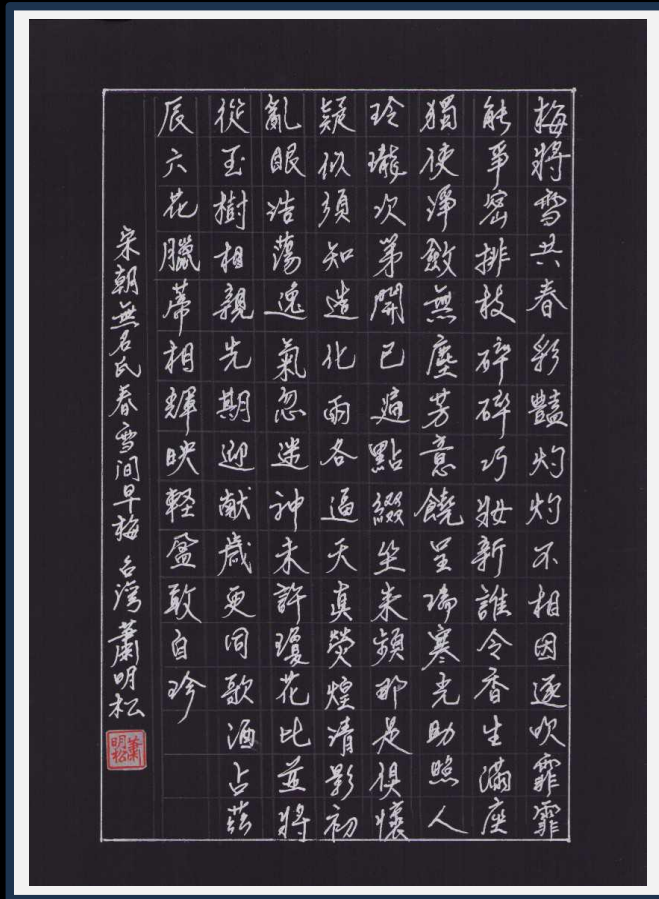 梅將雪共春彩豔灼灼不相因逐吹霏霏
能爭密排枝碎碎巧妝新誰令香生滿座
獨使淨斂無塵芳意饒呈瑞寒光助照人
玲瓏次第開已遍點綴坐来頻那是俱懷
疑似須知造化兩各逼天真熒煌清影初
亂眼浩蕩逸氣忽迷神未許瓊花比並將
從玉樹相親先期迎献歲更同歌酒占茲
辰六花臘蒂相輝映軽盈敢自珍
宋朝無名氏春雪間早梅 台灣蕭明松
蕭明松